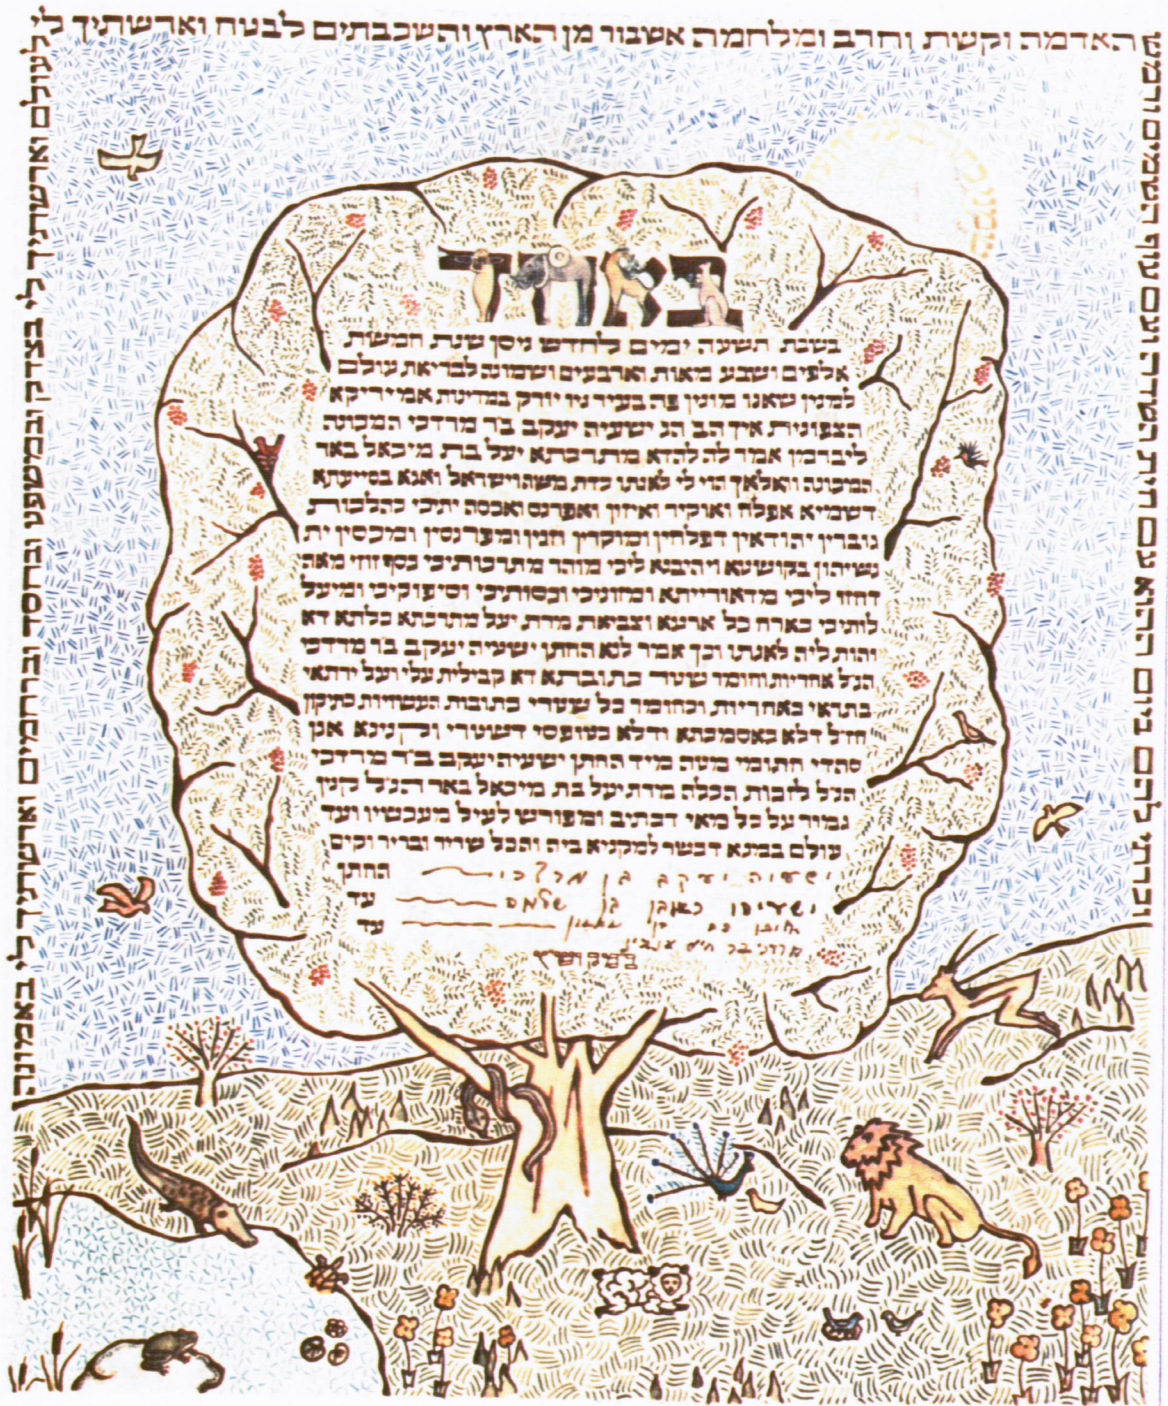 וכרתי להם ברית ביום ההוא עם חית השדה ועם עוף השמים ורמש
האדמה וקשת וחרב ומלחמה אשבור מן הארץ והשכבתים לבטח וארשתיך לי
לעולם וארשתיך לי בצדק ובמשפט ובחסד וברחמים וארשתיך לי באמונה
באחד
בשבת תשעה ימים לחדש ניסן שנת חמשת
אלפים ושבע מאות וארבעים ושמונה לבריאת עולם
למנין שאנו מונין פה בעיר ניו יורק במדינות אמיריקא
הצפונית איך הב הנ ישעיה יעקב ב״ר מרדכי המכונה
ליברמן אמר לה להדא מתרכתא יעל בת מיכאל באר
המכונה וואלאך הוי לי לאנתו כדת משה וישראל ואנא בסייעתא
דשמיא אפלח ואוקיר ואיזון ואפרנס ואכסה יתיכי כהלכות
גוברין יהודאין דפלחין ומוקרין וזנין ומפרנסין ומכסין ית
נשיהון בקושטא ויהיבנא ליכי מוהר מתרכותיכי כסף זוזי מאה
דחזו ליכי מדאורייתא ומזוניכי וכסותיכי וסיפוקיכי ומיעל
לותיכי כארח כל ארעא וצביאת מרת יעל מתרכתא כלתא דא
והות ליה לאנתו וכך אמר לנא החתן ישעיה יעקב ב״ר מרדכי
הנ״ל אחריות וחומר שטר כתובתא דא קבילית עלי ועל ירתאי
בתראי כאחריות וכחומר כל שטרי כתובות העשויות כתיקון
חז״ל דלא כאסמכתא ודלא כטופסי דשטרי וקנינא אנן
סהדי חתומי מטה מיד החתן ישעיה יעקב ב״ר מרדכי
הנ״ל לזכות הכלה מרת יעל בת מיכאל באר הנ״ל קנין
גמור על כל מאי דכתיב ומפורש לעיל מעכשיו ועד
עולם במנא דכשר למקניא ביה והכל שריר ובריר וקים
ישעיה יעקב בן מרדכי החתן
ישעיהו כהן בן שלמה עד
עד